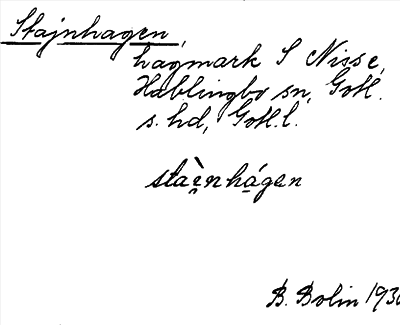 Stajnhagen,
hagmark S Nisse,
Hablingbo sn, Gotl.
s. hd, Gotl. l.
staènhágen
B. Bolin 193